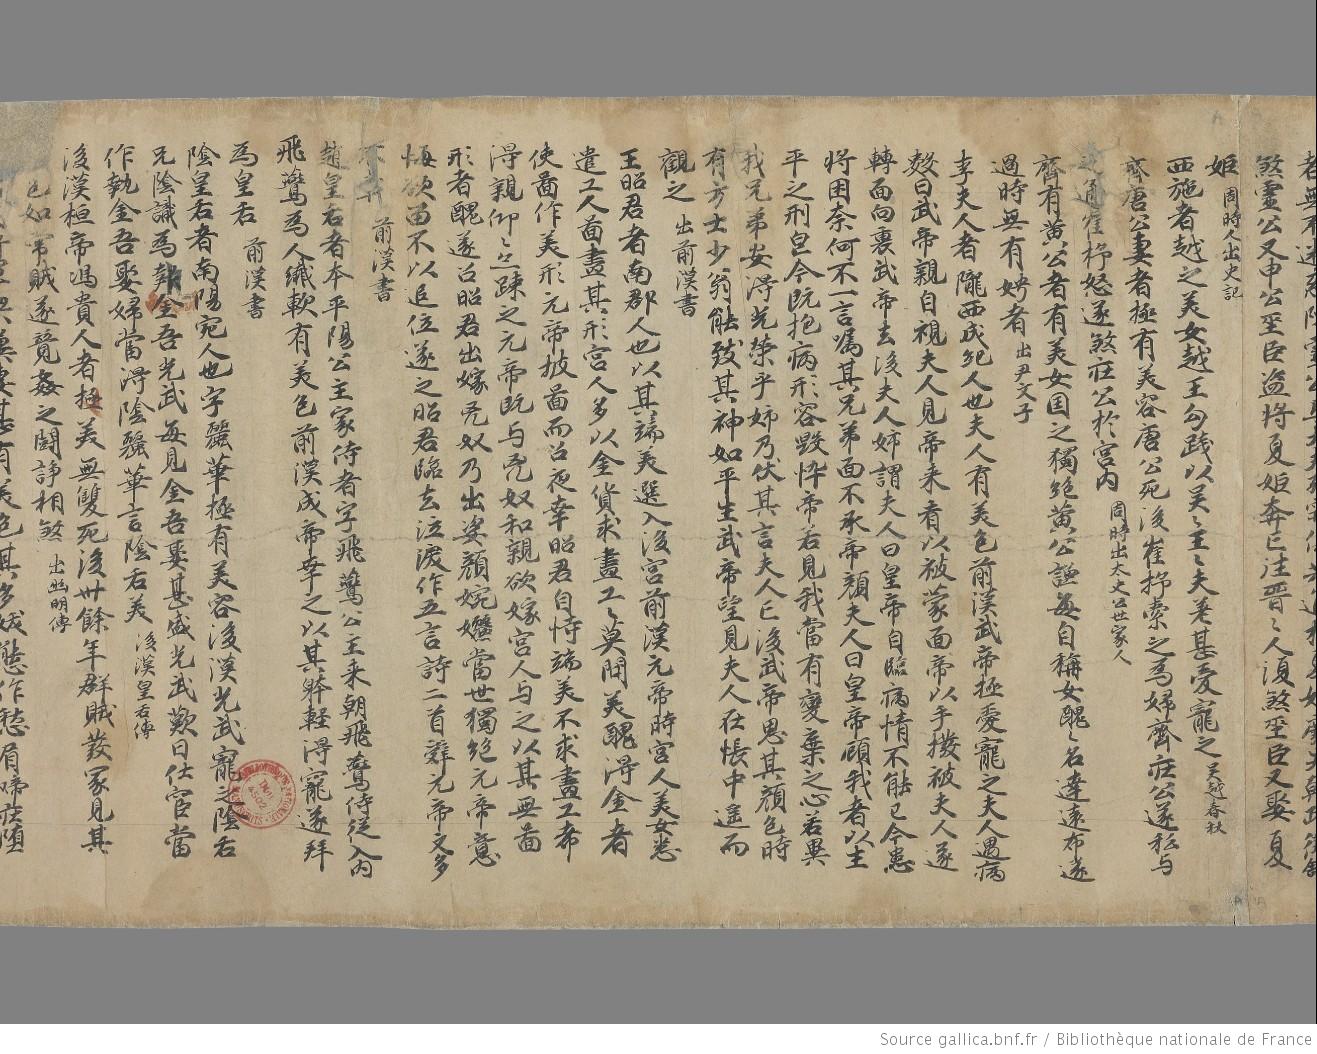 煞靈公又申公巫臣盜將夏姬奔已注晉〻人復煞巫臣又娶夏
姬 同時人出史記
西施者越之美女越王勾踐以吴〻主〻夫差甚愛寵之 吴越春秋
齊唐公妻者極有美容唐公死後崔抒索之為婦齊莊公遂私与
通崔抒怒遂煞莊公於宮內 同時出太史公世家人
齊有黄公者有美女国之獨絶黄公謙每自稱女醜〻名達遠布遂
過時無有娉者 出尹文子
李夫人者隴西成紀人也夫人有美色前漢武帝極愛寵之夫人遇病
数日武帝親自視夫人見帝来者以被蒙面帝以手撥被夫人遂
轉面向裏武帝去後夫人姉謂夫人曰皇帝自臨病情不能已今患
将困奈何不一言嘱其兄弟面不承帝顔夫人曰皇帝顧我者以主
平之刑皃今既抱病形容毀悴帝若見我當有變棄之心若異
我兄弟安淂光榮乎姉乃伏其言夫人亡後武帝思其顔色時
有方士少翁能致其神如平生武帝望見夫人在帳中遥而
觀之 出前漢書
王昭君者南郡人也以其端美選入後宮前漢元帝時宮人美女悉
遣工人啚畫其形宮人多以金貨求畫工〻莫問美醜淂金者
使啚作美形元帝披啚而召夜幸昭君自恃端美不求畫工希
淂親仰〻之疎之元帝既与兇奴和親欲嫁宮人与之以其無啚
形者醜遂召昭君出嫁兇奴乃出姿顔婉孋當世獨絶元帝意
悔欲留不以追位遂之昭君臨去泣淚作五言詩二首辤元帝文多
不載 前漢書
趙皇后者本平陽公主家侍者字飛鷰公主来朝飛鷰侍従入内
飛鷰為人纖軟有美色前漢成帝幸之以其躰輕淂寵遂拜
為皇后 前漢書
陰皇后者南陽宛人也字麗華極有美容後漢光武寵之陰后
兄陰識為執金吾光武每見金吾裏甚盛光武歎曰仕官當
作執金吾娶婦當淂陰麗華言陰后美 後漢皇后傳
後漢桓帝馮貴人者極美無雙死後卅餘年群賊發冢見其
色如常賊遂競姦之鬪諍相煞 出幽明傳
妻甚有美色其多娥態作愁眉啼莊堕